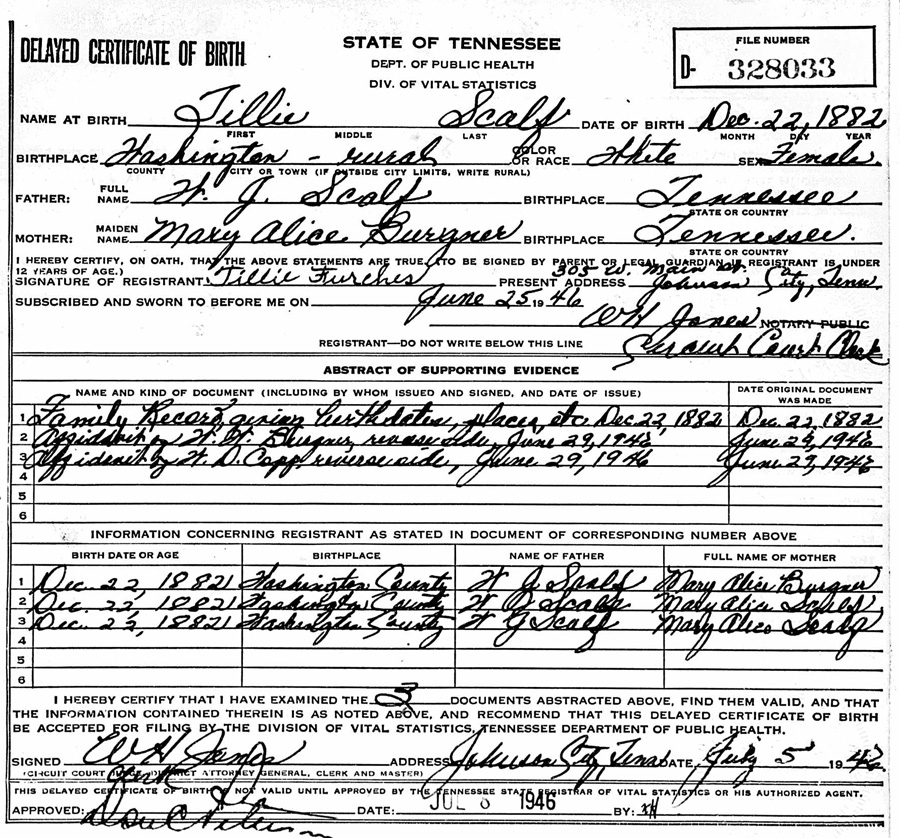 DELAYED CERTIFICATE OF BIRTH
STATE OF TENNESSEE
DEPT. OF PUBLIC HEALTH
DIV. OF VITAL STATISTICS
FILE NUMBER
D- 328033
NAME AT BIRTH Tillie Scalf DATE OF BIRTH Dec. 22, 1882
FIRST MIDDLE LAST MONTH DAY YEAR
BIRTHPLACE Washington - rural COLOR OR RACE White SEX Female.
COUNTY CITY OR TOWN (IF OUTSIDE CITY LIMITS, WRITE RURAL)
FATHER: FULL NAME W. J. Scalf BIRTHPLACE Tennessee
STATE OR COUNTRY
MOTHER: MAIDEN NAME Mary Alice Burgner BIRTHPLACE Tennessee.
STATE OR COUNTRY
I HEREBY CERTIFY, ON OATH, THAT THE ABOVE STATEMENTS ARE TRUE. (TO BE SIGNED BY PARENT OR LEGAL GUARDIAN IF REGISTRANT IS UNDER
12 YEARS OF AGE.)
SIGNATURE OF REGISTRANT: Tillie Furches PRESENT ADDRESS 305 W. Main St. Johnson City, Tenn.
SUBSCRIBED AND SWORN TO BEFORE ME ON June 25 1946
WH Jones NOTARY PUBLIC
REGISTRANT—DO NOT WRITE BELOW THIS LINE Circuit Court Clerk
ABSTRACT OF SUPPORTING EVIDENCE
NAME AND KIND OF DOCUMENT (INCLUDING BY WHOM ISSUED AND SIGNED, AND DATE OF ISSUE) DATE ORIGINAL DOCUMENT WAS MADE
1 Family Record, giving birth dates, places, etc. Dec. 22, 1882 Dec. 22, 1882
2 Affidavit by W. H. Burgner, reverse side, June 29, 1946 June 29, 1946
3 Affidavit by W. D. Copp reverse side, June 29, 1946 June 29, 1946
4
5
6
INFORMATION CONCERNING REGISTRANT AS STATED IN DOCUMENT OF CORRESPONDING NUMBER ABOVE
BIRTH DATE OR AGE BIRTHPLACE NAME OF FATHER FULL NAME OF MOTHER
1 Dec. 22, 1882 Washington County W J Scalf Mary Alice Burgner
2 Dec. 22, 1882 Washington County W J Scalf Mary Alice Scalf
3 Dec. 22, 1882 Washington County W J Scalf Mary Alice Scalf
4
5
6
I HEREBY CERTIFY THAT I HAVE EXAMINED THE 3 DOCUMENTS ABSTRACTED ABOVE, FIND THEM VALID, AND THAT
THE INFORMATION CONTAINED THEREIN IS AS NOTED ABOVE, AND RECOMMEND THAT THIS DELAYED CERTIFICATE OF BIRTH
BE ACCEPTED FOR FILING BY THE DIVISION OF VITAL STATISTICS, TENNESSEE DEPARTMENT OF PUBLIC HEALTH.
SIGNED WH Jones ADDRESS Johnson City, Tenn DATE July 5 1946
(CIRCUIT COURT ATTORNEY GENERAL, CLERK AND MASTER)
THIS DELAYED CERTIFICATE OF BIRTH IS NOT VALID UNTIL APPROVED BY THE TENNESSEE STATE REGISTRAR OF VITAL STATISTICS OR HIS AUTHORIZED AGENT.
APPROVED: DATE: JUL 8 1946 BY: